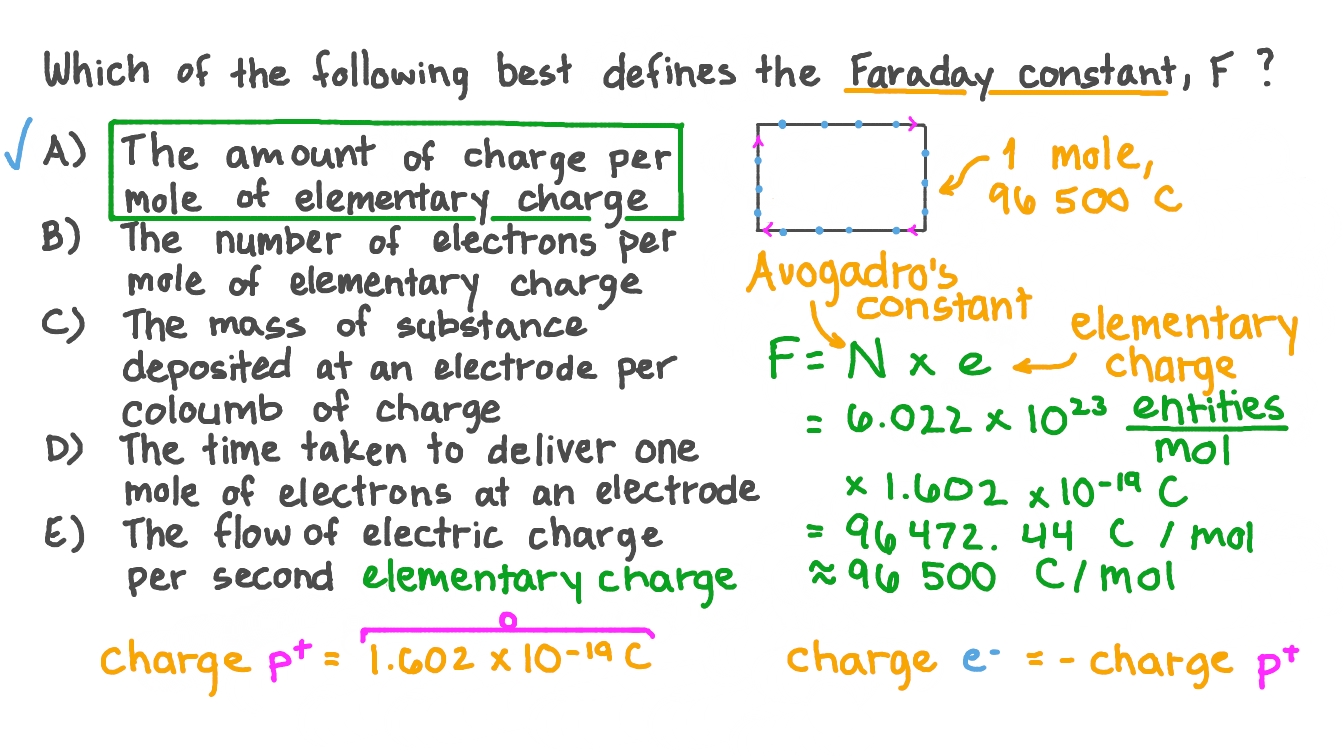 Which of the following best defines the Faraday constant, F ?
A) The amount of charge per
mole of elementary charge
B) The number of electrons per
mole of elementary charge
C) The mass of substance
deposited at an electrode per
coloumb of charge
D) The time taken to deliver one
mole of electrons at an electrode
E) The flow of electric charge
per second
elementary charge
charge p⁺ = 1.602 × 10⁻¹⁹ C
1 mole,
96 500 C
Avogadro's
constant
elementary
charge
F = N × e
= 6.022 × 10²³ entities/mol
× 1.602 × 10⁻¹⁹ C
= 96 472. 44 C / mol
≈ 96 500 C / mol
charge e⁻ = - charge p⁺